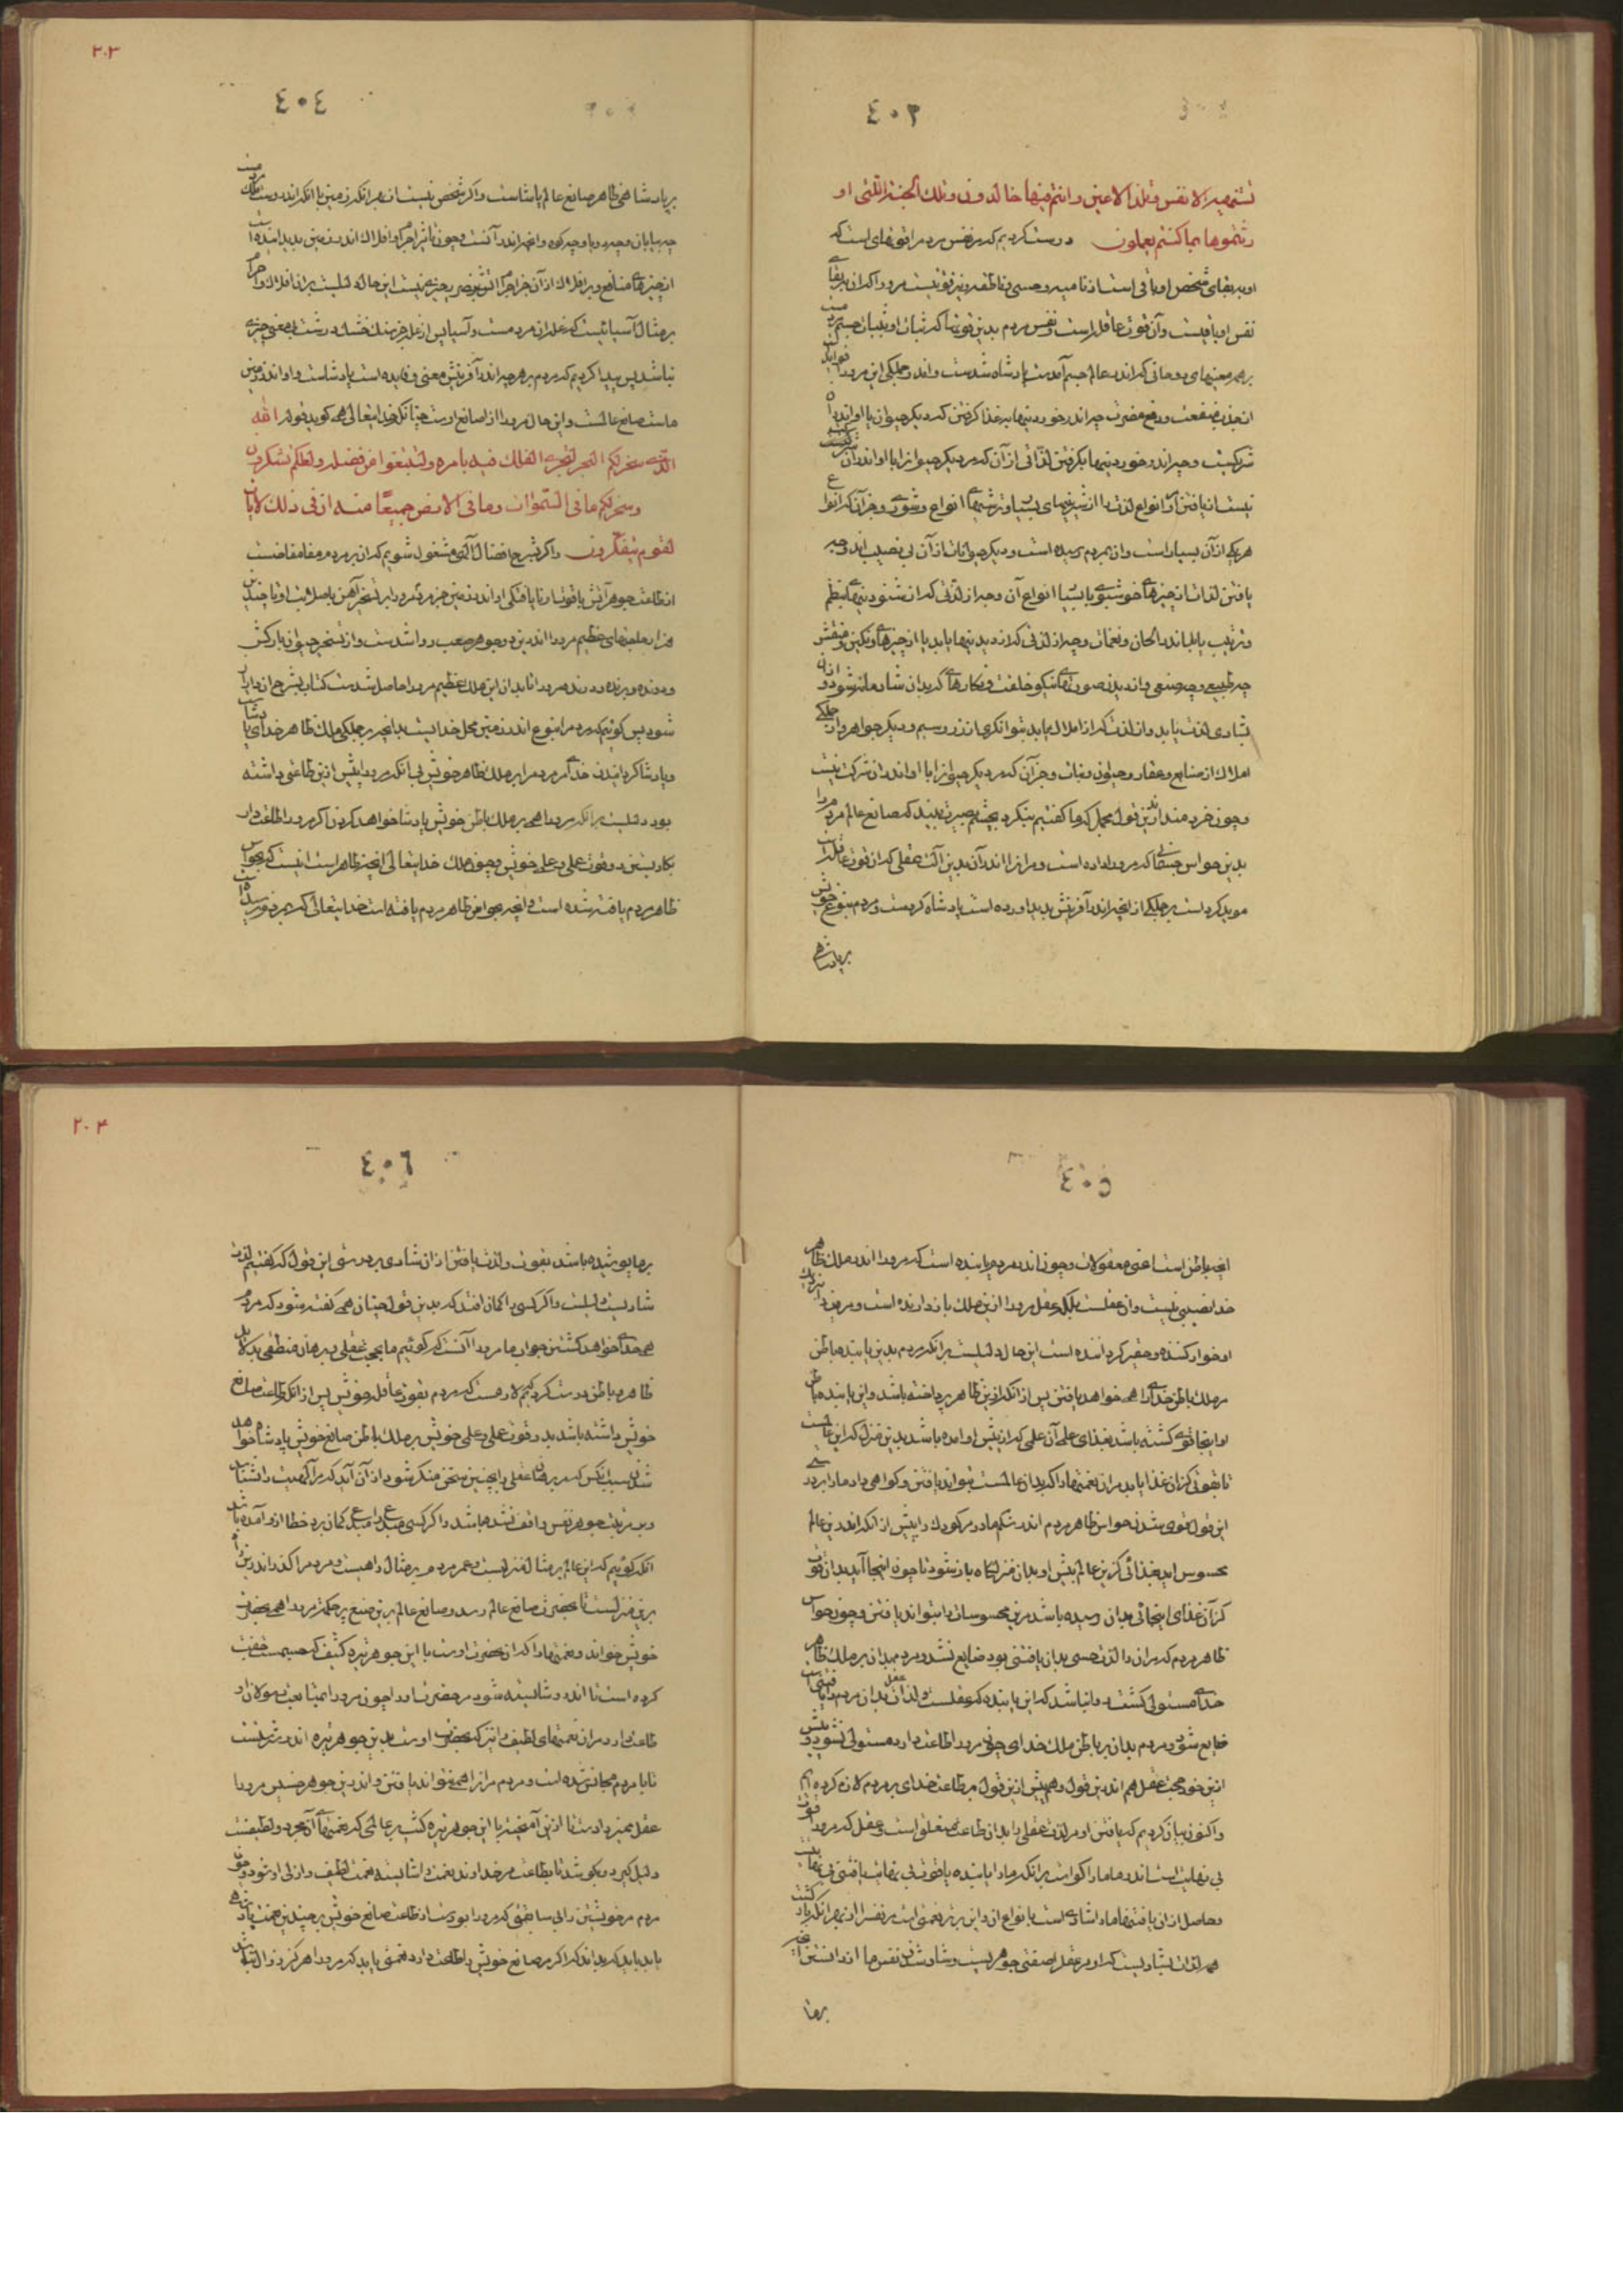 ٤٠٣
تشتهیه الانفس وتلذ الاعین وانتم فیها خالدون وتلک الجنة التی او
رثتموها بما کنتم تعملون درست کردیم که مر نفس مردم را قوتهای است که
او ببقای شخص او باقی است از نامیه و حسی و ناطقه و نیز قوتیست مرورا که آن ببقای
نفس او باقیست و آن قوت عاقله است و نفس مردم بدین قوتها که ثبات او بثبات جسم
بر همه معنیهای روحانی که اندر عالم جسم آمدست پادشاه شدست و اندر جملکی این مرورا فواید
از جذب منفعت و دفع مضرت چه اندر خوردنیها بغذا کرفتن که دیکر حیوان با او اندر آن
شرکیست و چه اندر خوردنیها بکرفتن لذاتی از آن که مر دیکر حیوانرا با او اندر آن شرکت
نیست از یافتن انواع لذتها از شیرینیهای بسیار و ترشیهای انواع و شوری و جز آن که انواع
هر یکی از آن بسیار است و آن بمردم رسیده است و دیکر حیوانات از آن بی نصیب اند و چه
یافتن لذات از چیزهای خوشبوی با بسیار انواع آن و چه از لذتی که از شنودنیهای بنظم
و ترتیب یابد مانند الحان و نغمات و چه از لذتی که از دیدنیها یابد با از چیزهای رنکین و منقش
چه طبیعی و چه صنعی و اندر دیدن صورتهای نیکو خلقت و نکارهای که بدان شادمانه شود و از آن
شادی لذت یابد و از لذت که از املاک یابد بتوانکری از زر و سیم و دیکر جواهر و از جملکی
املاک از صنایع و عقار و حیوان و نبات و جز آن که مر دیکر حیوانرا با او اندر آن شرکت نیست
و چون خردمند اندرین قول مجمل که ما کفتیم بنکرد بچشم بصیرت ببیند که صانع عالم مردم را
بدین حواس جسمانی که مرورا داده است و مر آنرا اندر آن بدین آلت عقلی که آن قوت عاقله است
موید کرده است بر جملکی از آنچه اندر آفرینش پدید آورده است پادشاه کردست و مردم بتنوع خویش
بر پادشاهی
٢٠٣
٤٠٤
بر پادشاهی ظاهر صانع عالم پادشاست و اکر شخص نیست از بهر آنکه زمین با آنکه اندروست ملک مردمست
چه بیابان و چه دریا و چه کوه و آنچه اندر آنست و چون تاثیر اجرام و افلاک اندر زمین پدید آینده است
از چیزهای منافع و بر افلاک از آن جز اجرام اثر بخش چیزی نیست این حال دلیلست بر آن افلاک و اجرام
بر مثال آسیائیست که غله آن مردمست و آسیا پس از غله جز سنک خشک درشت بیمعنی چیزی
نباشد پس پیدا کردیم که مردم بر هر چه اندر آفرینش معنی و فایده است پادشاست و او اندر زمین
مانند صانع عالمست و این حال مرورا از صانع اوست چنانکه خدایتعالی همی کوید قوله الله
الذی سخر لکم البحر لتجری الفلک فیه بامره ولتبتغوا من فضله ولعلکم تشکرون
وسخر لکم ما فی السموات وما فی الارض جمیعا منه ان فی ذلک لایات
لقوم یتفکرون واکر بشرح افضال الهی مشغول شویم که آن بر مردم مفاضست
از طاعت جوهر آتش یا قوت او تا یافتکی او اندر زمین جز مردم را و در تسخیر آهن با صلابت او تا چندین
هزار صنعتهای عظیم مرورا اندرین دو جوهر صعب روا شدست و از تسخیر حیوان بارکش
و رونده و پرنده و درنده مرورا تا بدان این ملک عظیم مرورا حاصل شدست کتاب بشرح آن دراز
شود پس کوئیم که مردم را بتنوع اندر زمین محل خدائیست بدانچه بر جملکی ملک ظاهر خدای پادشاست
و پادشا کردانیدن خدای مردم را بر ملک ظاهر خویش بی آنکه مرورا پیش ازین طاعتی داشته
بود دلیلست بر آنکه مرورا همی بر ملک باطن خویش پادشا خواهد کردن اکر مرورا طاعت دارد
بکار بستن دو قوت علمی و عملی خویش و چون ملک خدایتعالی آنچه ظاهر است آنست که بحواس
ظاهر مردم یافته شده است و آنچه بحواس ظاهر مردم یافته است خدایتعالی که مر مردم را بر آن
٤٠٥
آنچه باطن است اعنی معقولات و چون اندر مردم یابنده است که مرورا اندر ملک ظاهر
خدا نصیبی نیست و آن عقلست بلکه عقل مرورا ازین ملک باز دارنده است و مر
او خوار کننده و حقیر کرداننده است این حال دلیلست بر آنکه مردم بدین یابنده باطن
مر ملک باطن خدایرا همی خواهد یافتن پس از آنکه ازین ظاهر پرداخته باشد و این یابنده باطن
او اینجا قوی کشته باشد بغذای علمی آن علمی که از پیش او آمده باشد بدین منزل که این عالمست
تا بقوتی کز آن غذا یابد مر آن نعمتها را که بدان عالمست بتواند یافتن و کواهی داد ما را بر درستی
این قول قوی شدن حواس ظاهر مردم اندر شکم مادر مر کودک را پیش از آنکه اندرین عالم
محسوس آید بغذائی کزین عالم پیش او بدان منزلکاه باز شود تا چون اینجا آید بدان قوت
کز آن غذای اینجائی بدان رسیده باشد مرین محسوسات را بتواند یافتن و چون حواس
ظاهر مردم که مر آن را لذات حسی بدان یافتنی بود ضایع نشد و مردم بدان بر ملک ظاهر
خدای مستولی کشت روا نباشد که این یابنده که عقلست و لذات عقلی بدان مردم را یافتنی است
ضایع شود و مردم بدان بر باطن ملک خدای چون مرورا طاعت دارد مستولی نشود و پیش
ازین خود حجت عقل هم اندرین قول و هم پیش ازین قول بر طاعت خدای بر مردم لازم کرده ایم
و اکنون بیان کردیم که یافتن او مر لذت عقلی را بدان طاعت متعلق است و عقل که مرورا قوت
بی نهایت است اندر ما ما را کواست بر آنکه ما را یابنده با قوت بی نهایت یافتنی بی نهایت
و حاصل از آن یافتنیها ما را شادی است بانواع آن و این برتر نعمتی است مر نفس را از بهر آنکه باز کشت
همه لذات بشادیست که او مر عقل را صفتی جوهریست و شاد شدن نفس ما از دانستن آنچه
بر ما
٢٠٤
٤٠٦
بر ما پوشیده باشد بقوت و لذت یافتن از آن شادی بر درستی این قول که کفتیم لذت
شادیست دلیلست و اکر کسی را کمان افتد که بدین قول چنان همی کفته شود که مردم
همی خدای خواهد کشتن جواب ما مرورا آنست که کوئیم ما بحجت عقلی و برهان منطقی بدلایل
ظاهر و باطن درست کردیم که لازمست که مردم بقوت عاقله خویش پس از آنکه طاعت صانع
خویش داشته باشد بدو قوت علمی و عملی خویش بر ملک باطن صانع خویش پادشا خواهد
شدن سبب آنکس که مر برهان عقلی را بچنین سخن منکر شود از آن آید که مر الهیت را نشناسد
و بر مرتبت جوهر نفس واقف نشده باشد و اکر کسی مبدع را مبدع کمان برد خطا از او آمده باشد
آنکه کوئیم که این عالم بر مثال منزلیست و عمر مردم بر مثال راهیست و مردم را کذر اندرین راه
برین منزلست تا بحضرت صانع عالم رسد و صانع عالم برین صنع پر حکمت مرورا همی بحضرت
خویش خواند و نعمتها را که آن بحضرت اوست با این جوهر تیره کثیف که جسمست جفت
کرده است تا اندر و شایسته شود مر حضرت او را چون مرورا بمتابعت رسولان او
طاعت دارد مر آن نعمتهای لطیف را نیز که بحضرت اوست بدین جوهر تیره اندر سرشتست
تا با مردم مجانس شده است و مردم مر آنرا همی بتواند یافتن و اندرین جوهر خسیس مرورا
عقل ممیز دادست تا ازین آمیخته با این جوهر تیره کثیف بر عالمی که نعمتهای آن مجرد و لطیفست
دلیل کیرد و بکوشد تا بطاعت مر خداوند نعمت را شایسته نعمت لطیف و ازلی او شود و چون
مردم مر خویشتن را بی سابقتی که مرورا بودست از طاعت صانع خویش بر چندین نعمت پادشاه
یابد باید که بداند که اکر مر صانع خویش را طاعت دارد نعمتی یابد که مرورا هرکز زوال نباشد